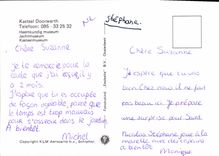 Kasteel Doorwerth
Telefoon: 085 - 33 25 32
Heemkundig museum
Jachtmuseum
Kasteelmuseum
Stéphane.
Chère Suzanne
Je te remercie pour la
carte que j'ai reçu il y
a 2 mois.
J'espère que tu es occupée
de façon agréable, parce que
le temps est trop mauvais
pour s'asseoir dans le jardin
A bientôt
Michel
Copyright KLM Aerocarto b.v., Schiphol
Chère Suzanne
J'espère que tu vas
bien Chez nous il ne fait
pas beau ici. Je prépare
une surprise pour Sunt
Nicolas Stéphane joue à la
A bientôt
Monique